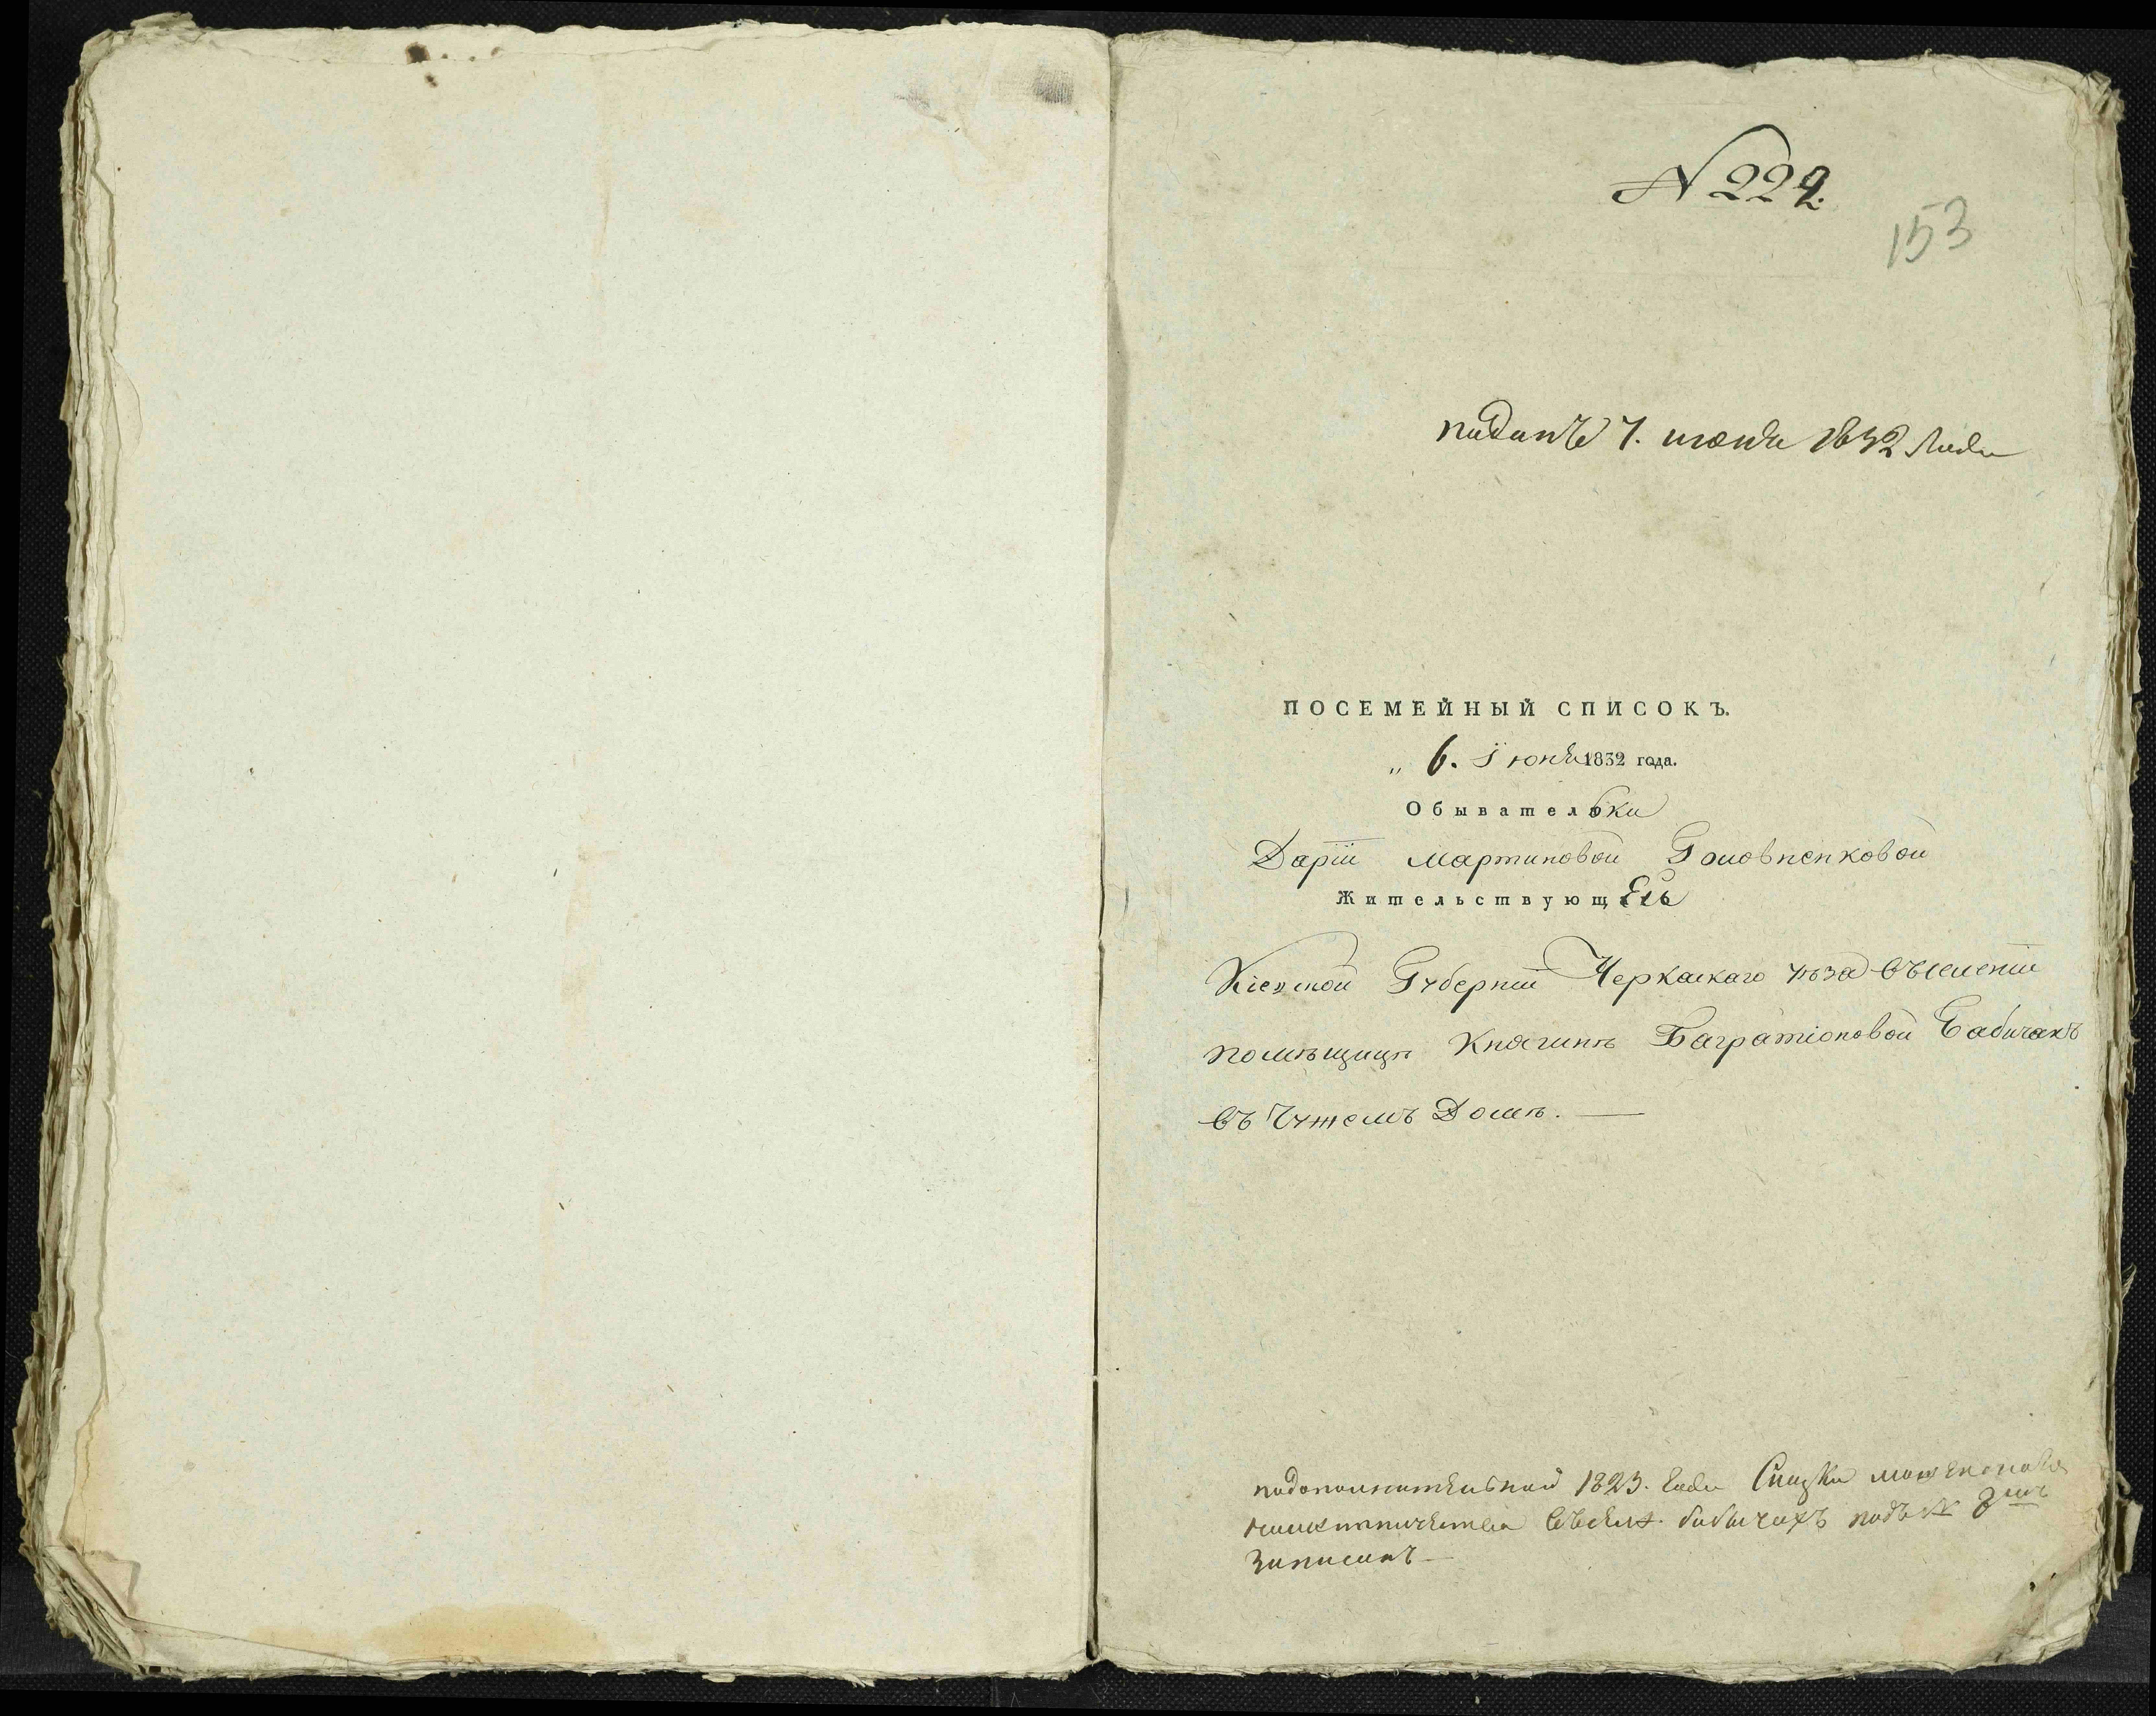 N 222.
153
поданъ 7. июня 1832 Года
ПОСЕМЕЙНЫЙ СПИСОКЪ.
„ 6. Іюня 1832 года.
Обывательки
Даріи Мартиновой Головненковой
ЖительствующЕй
Кіевской Губерніи Черкаскаго уѣзда въ имѣніи
помѣщицы Княгинѣ Багратіоновой Бабичахъ
въ Чужемъ Домѣ. —
подополнительной 1823. Года Сказки
въ бабичахъ подъ №
записанъ —